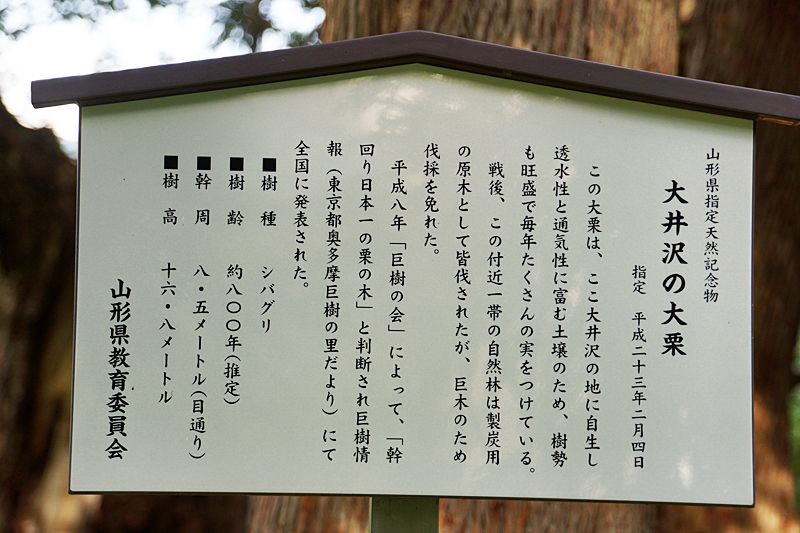 山形県指定天然記念物
大井沢の大栗
指定 平成二十三年二月四日
この大栗は、ここ大井沢の地に自生し
透水性と通気性に富む土壌のため、樹勢
も旺盛で毎年たくさんの実をつけている。
戦後、この付近一帯の自然林は製炭用
の原木として皆伐されたが、巨木のため
伐採を免れた。
平成八年「巨樹の会」によって、「幹
回り日本一の栗の木」と判断され巨樹情
報(東京都奥多摩巨樹の里だより)にて
全国に発表された。
■樹種 シバグリ
■樹齢 約八〇〇年(推定)
■幹周 八・五メートル(目通り)
■樹高 十六・八メートル
山形県教育委員会